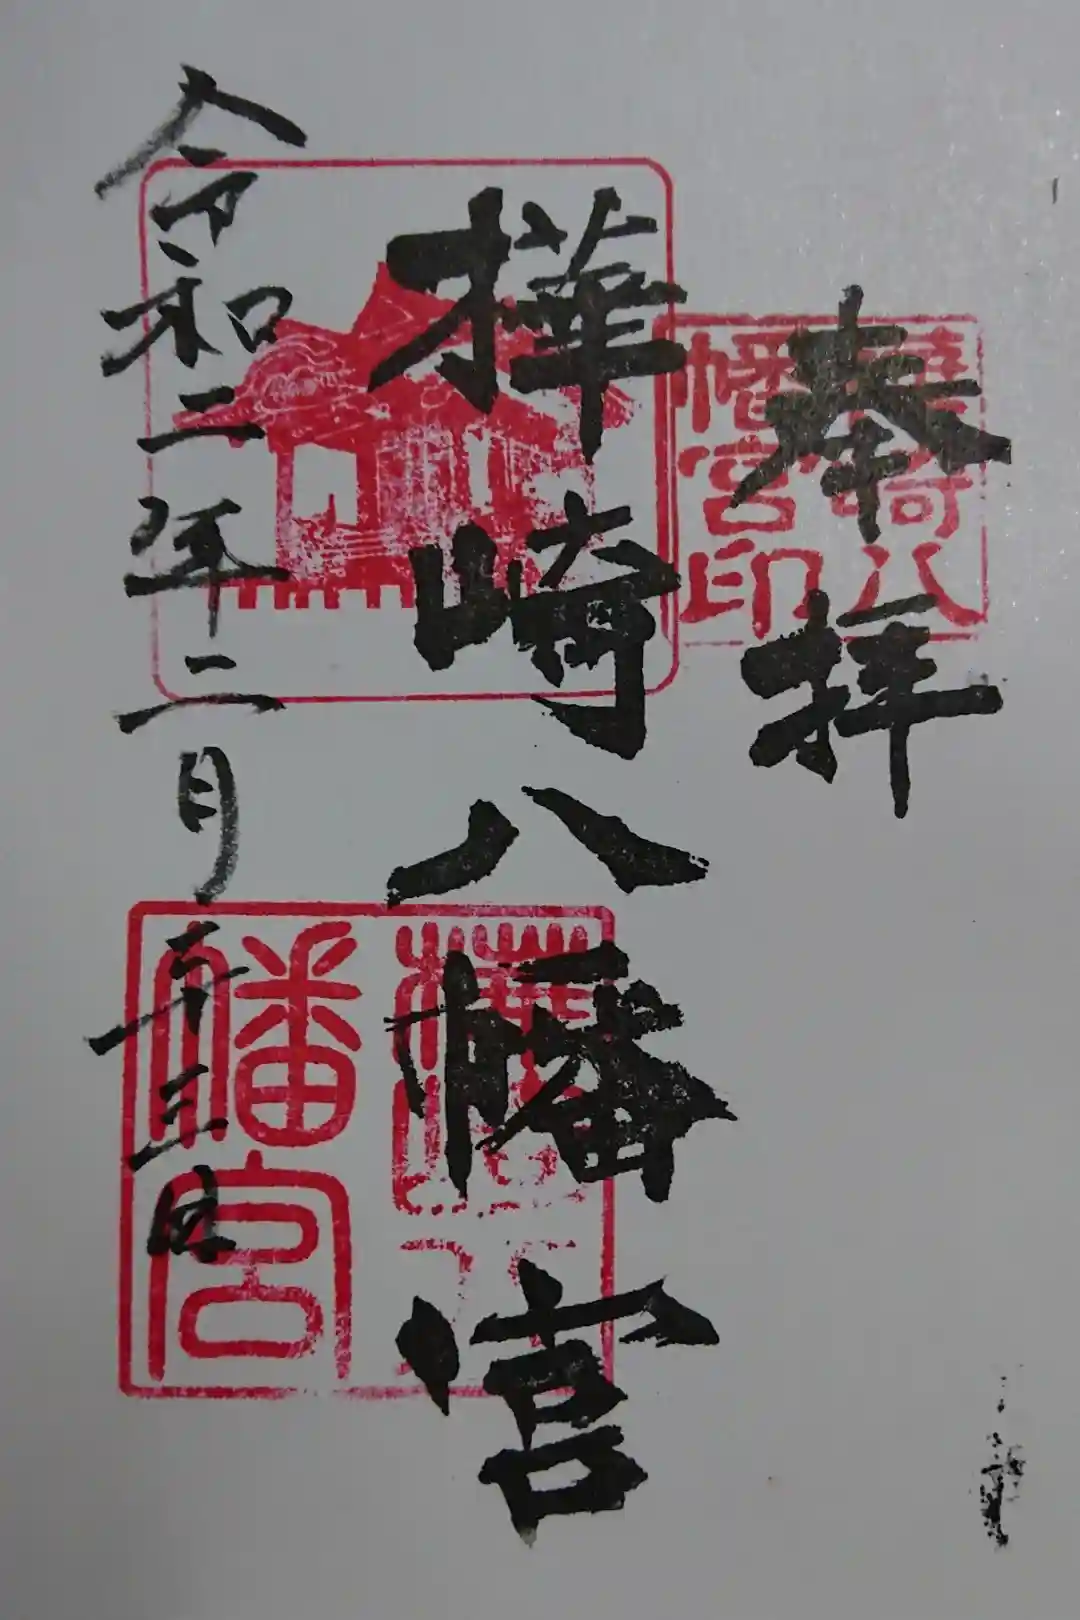 奉拝
樺崎八幡宮
令和二年二月二十三日
樺崎八
幡宮印
幡宮